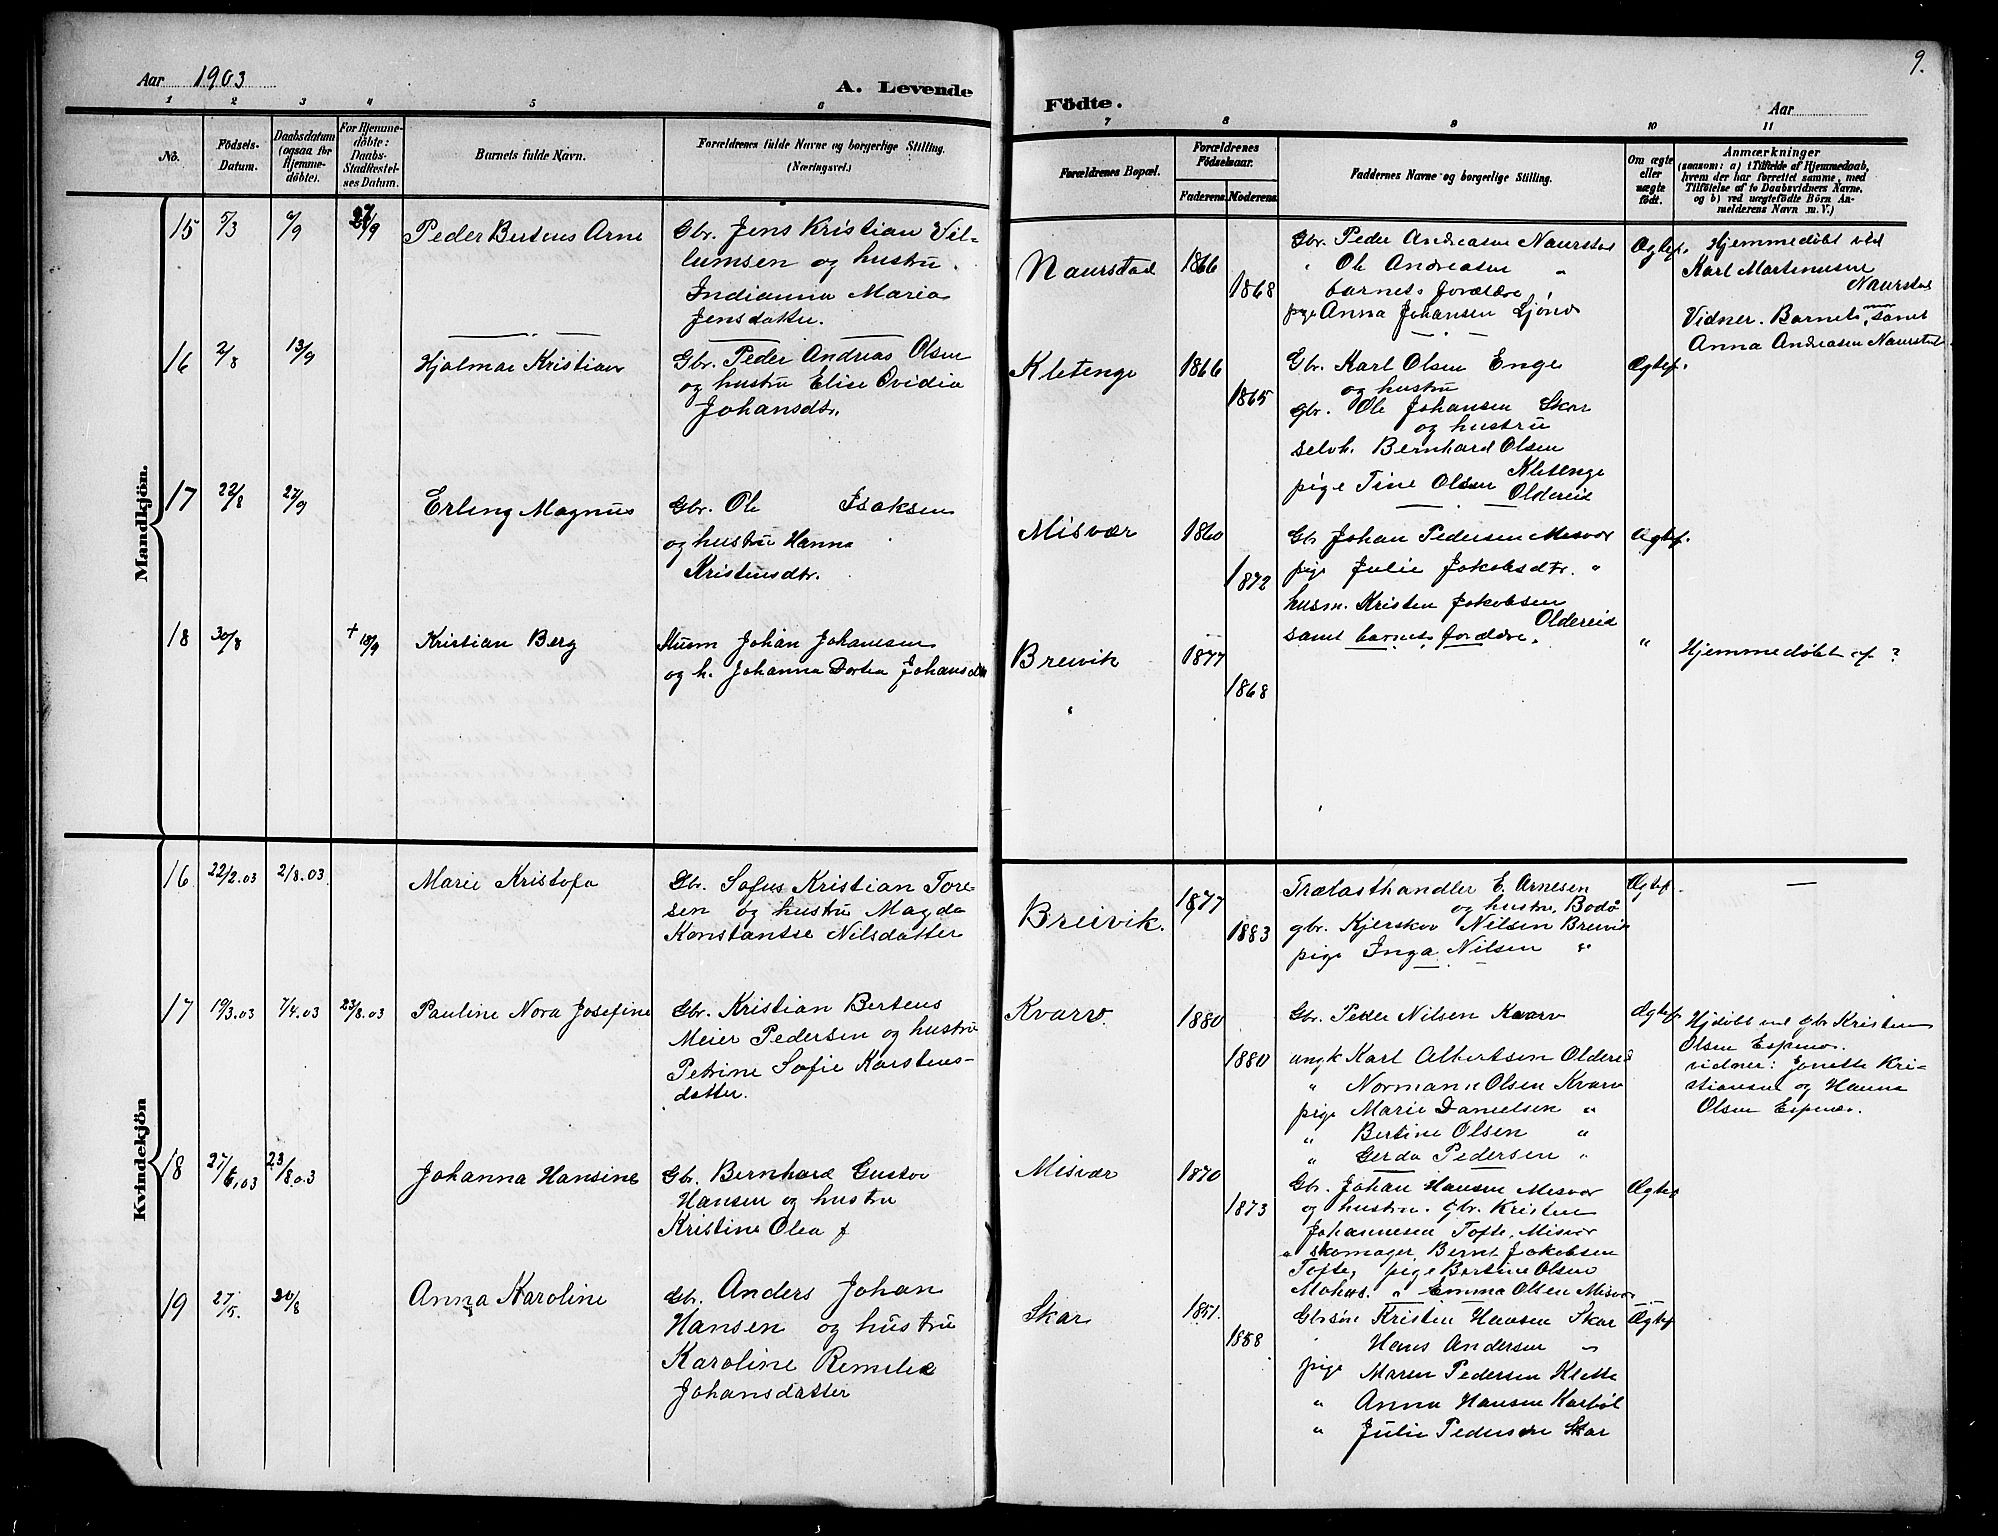 9.
Aar 1903
A. Levende
Födte.
Aar
1 2 3 4 5 6
7 8 9 10 11
No.
Födsels-
Datum.
Daabsdatum
(ogsaa for
Hjemme-
döbte).
For Hjemme-
döbte:
Daabs-
Stadfæstel-
ses Datum.
Barnets fulde Navn.
Forældrenes fulde Navne og borgerlige Stilling.
(Næringsvei.)
Forældrenes Bopæl.
Forældrenes
Födselsaar.
Faderens. Moderens.
Faddernes Navne og borgerlige Stilling.
Om ægte
eller
uægte
födt.
Anmærkninger
(saasom: a) i Tilfælde af Hjemmedaab,
hvem der har forrettet samme, med
Tilföielse af to Daabsvidners Navne.
og b) ved uægtefödte Börn An-
melderens Navn m. V.)
Mandkjön.
15 5/3 6/9 27/9 Peder Berteus Arne
Gbr. Jens Kristian Vil-
lumsen og hustru
Indianna Maria
Jensdatter.
Naurstad 1866
1868
Gbr. Peder Andreasen Naurstad
" Ole Andreasen "
barnets forældre,
pige Anna Johansen Ljönes
Ægtef.
Hjemmedöbt ved
Karl Martinusen
Naurstad
Vidner. Barnets mor samt
Anna Andreasen Naurstad.
16 2/8 13/9 Hjalmar Kristian
Gbr. Peder Andreas Olsen
og hustru Elise Ovidia
Johansdtr.
Kletenge 1866
1865
Gbr. Karl Olsen Enge
og hustru
Gbr. Ole Johansen Skar
og hustru
selvh. Bernhard Olsen
Kletenge
pige Tine Olsen Oldereid
Ægtef.
17 22/8 27/9 Erling Magnus
Gbr. Ole Isaksen
og hustru Hanna
Kristensdtr.
Misvær 1860
1872
Gb. Johan Pedersen Misvær
pige Julie Jakobsdtr. "
husm. Kristen Jakobsen
Oldereid
samt barnets forældre.
Ægtef.
18 30/8 † 18/9 Kristian Berg
Husm Johan Johansen
og h. Johanna Dortea Johansdtr
Breivik 1877
1868
"
"
Hjemmedöbt af ?
Kvindekjön
16 22/2.03 2/8.03 Marie Kristofa
Gbr. Sofus Kristian Tore-
sen og hustru Magda
Konstantse Nilsdatter
Breivik. 1877
1883
Trælasthandler E. Arnesen
og hustru, Bodö
gbr. Kjerskov Nilsen Breivik
pige Inga Nilsen "
Ægtef.
17 19/3.03 7/4.03 23/8.03 Pauline Nora Josefine
Gbr. Kristian Berteus
Meier Pedersen og hustru
Petrine Sofie Karstens-
datter.
Kvarv. 1880
1880
Gbr. Peder Nilsen Kvarv
ungk Karl Albertsen Oldereid
" Normann Olsen Kvarv
pige Marie Danielsen "
" Bertine Olsen "
" Gerda Pedersen "
Ægtef.
Hjdöbt ved gbr Kristen
Olsen Espenes.
vidner: Jonette Kri-
stiansen og Hanna
Olsen Espenes.
18 27/6.03 23/8.03 Johanna Hansine
Gbr. Bernhard Gustav
Hansen og hustru
Kristine Olea
Misvær 1870
1873
Gbr. Johan Hansen Misvær
og hustru. gbr. Kristen
Johannesen Tofte, Misvær
skomager, Bernt Jakobsen
Tofte, pige Bertine Olsen
Mohus. " Emma Olsen Misvær
Ægtef
19 27/5. 30/8 Anna Karoline
Gbr. Anders Johan
Hansen og hustru
Karoline Remelie
Johansdatter
Skar 1851.
1858
Gbrsön Kristen Hansen Skar
" Hans Andersen "
pige Maren Pedersen Klette
" Anna Hansen Karböl
" Julie Pedersen Skar
Ægtef.